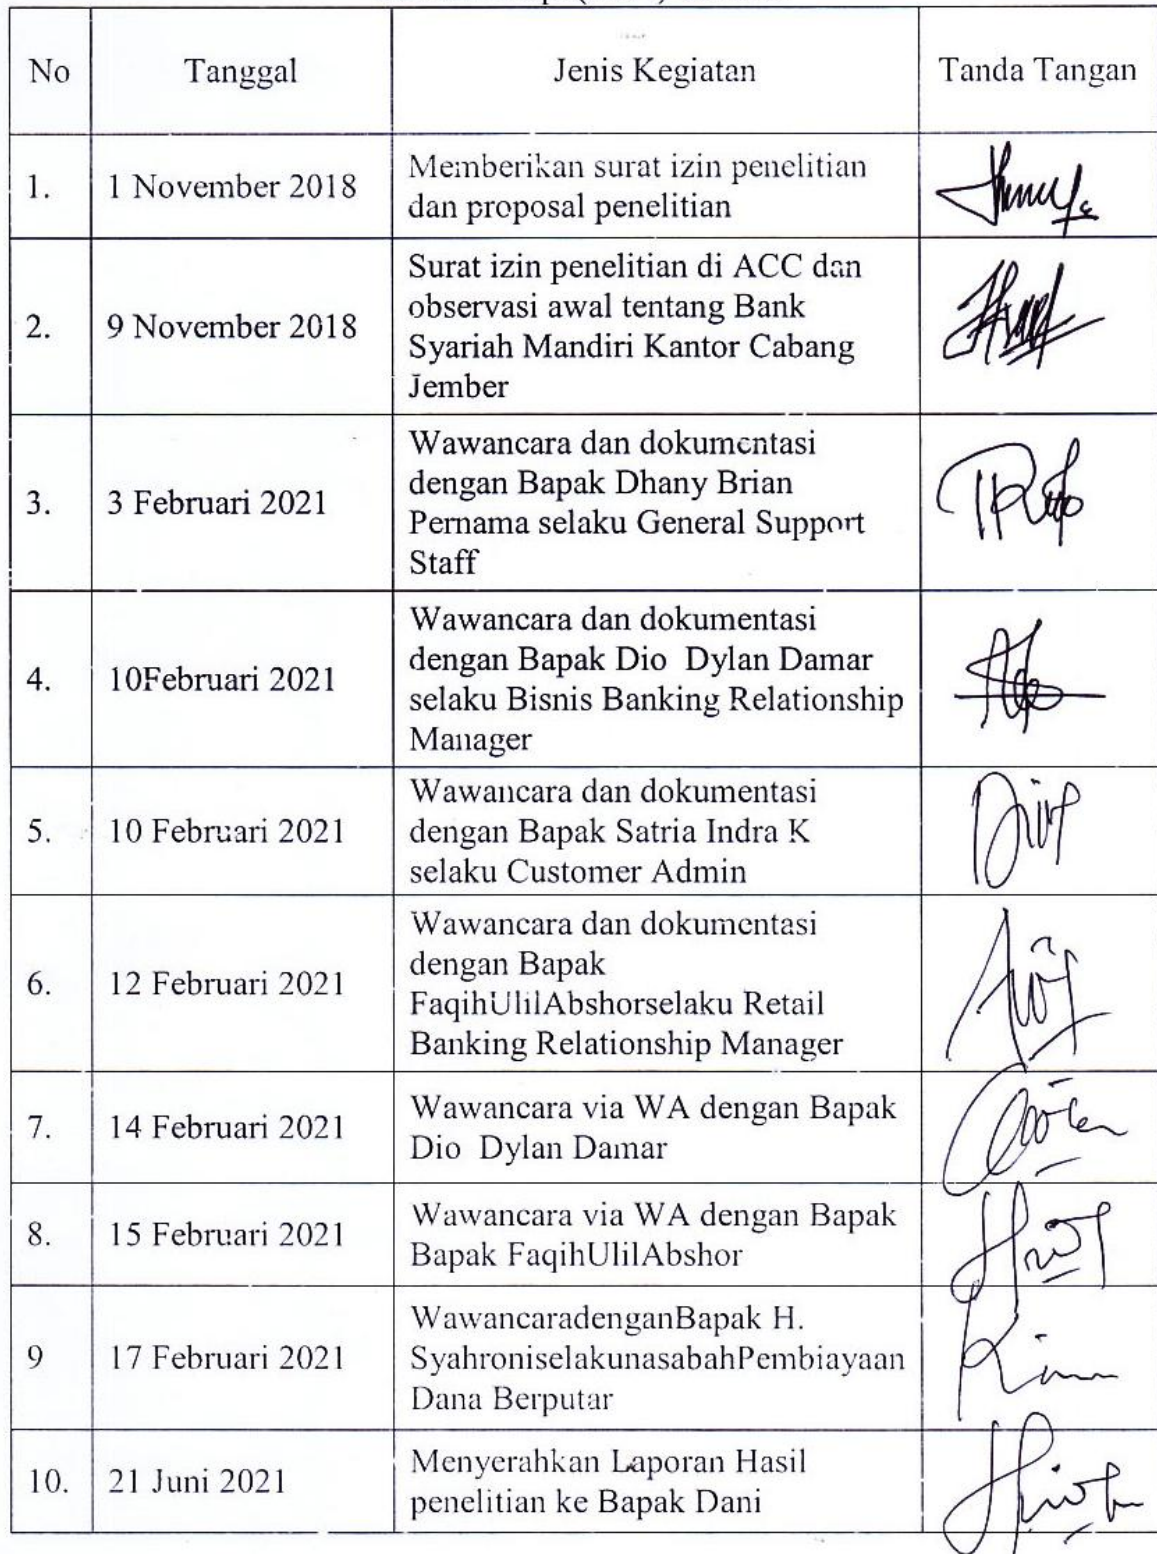 No Tanggal Jenis Kegiatan Tanda Tangan
1. 1 November 2018 Memberikan surat izin penelitian
dan proposal penelitian
2. 9 November 2018 Surat izin penelitian di ACC dan
observasi awal tentang Bank
Syariah Mandiri Kantor Cabang
Jember
3. 3 Februari 2021 Wawancara dan dokumentasi
dengan Bapak Dhany Brian
Pernama selaku General Support
Staff
4. 10Februari 2021 Wawancara dan dokumentasi
dengan Bapak Dio Dylan Damar
selaku Bisnis Banking Relationship
Manager
5. 10 Februari 2021 Wawancara dan dokumentasi
dengan Bapak Satria Indra K
selaku Customer Admin
6. 12 Februari 2021 Wawancara dan dokumentasi
dengan Bapak
FaqihUlilAbshorselaku Retail
Banking Relationship Manager
7. 14 Februari 2021 Wawancara via WA dengan Bapak
Dio Dylan Damar
8. 15 Februari 2021 Wawancara via WA dengan Bapak
Bapak FaqihUlilAbshor
9 17 Februari 2021 WawancaradenganBapak H.
SyahroniselakunasabahPembiayaan
Dana Berputar
10. 21 Juni 2021 Menyerahkan Laporan Hasil
penelitian ke Bapak Dani